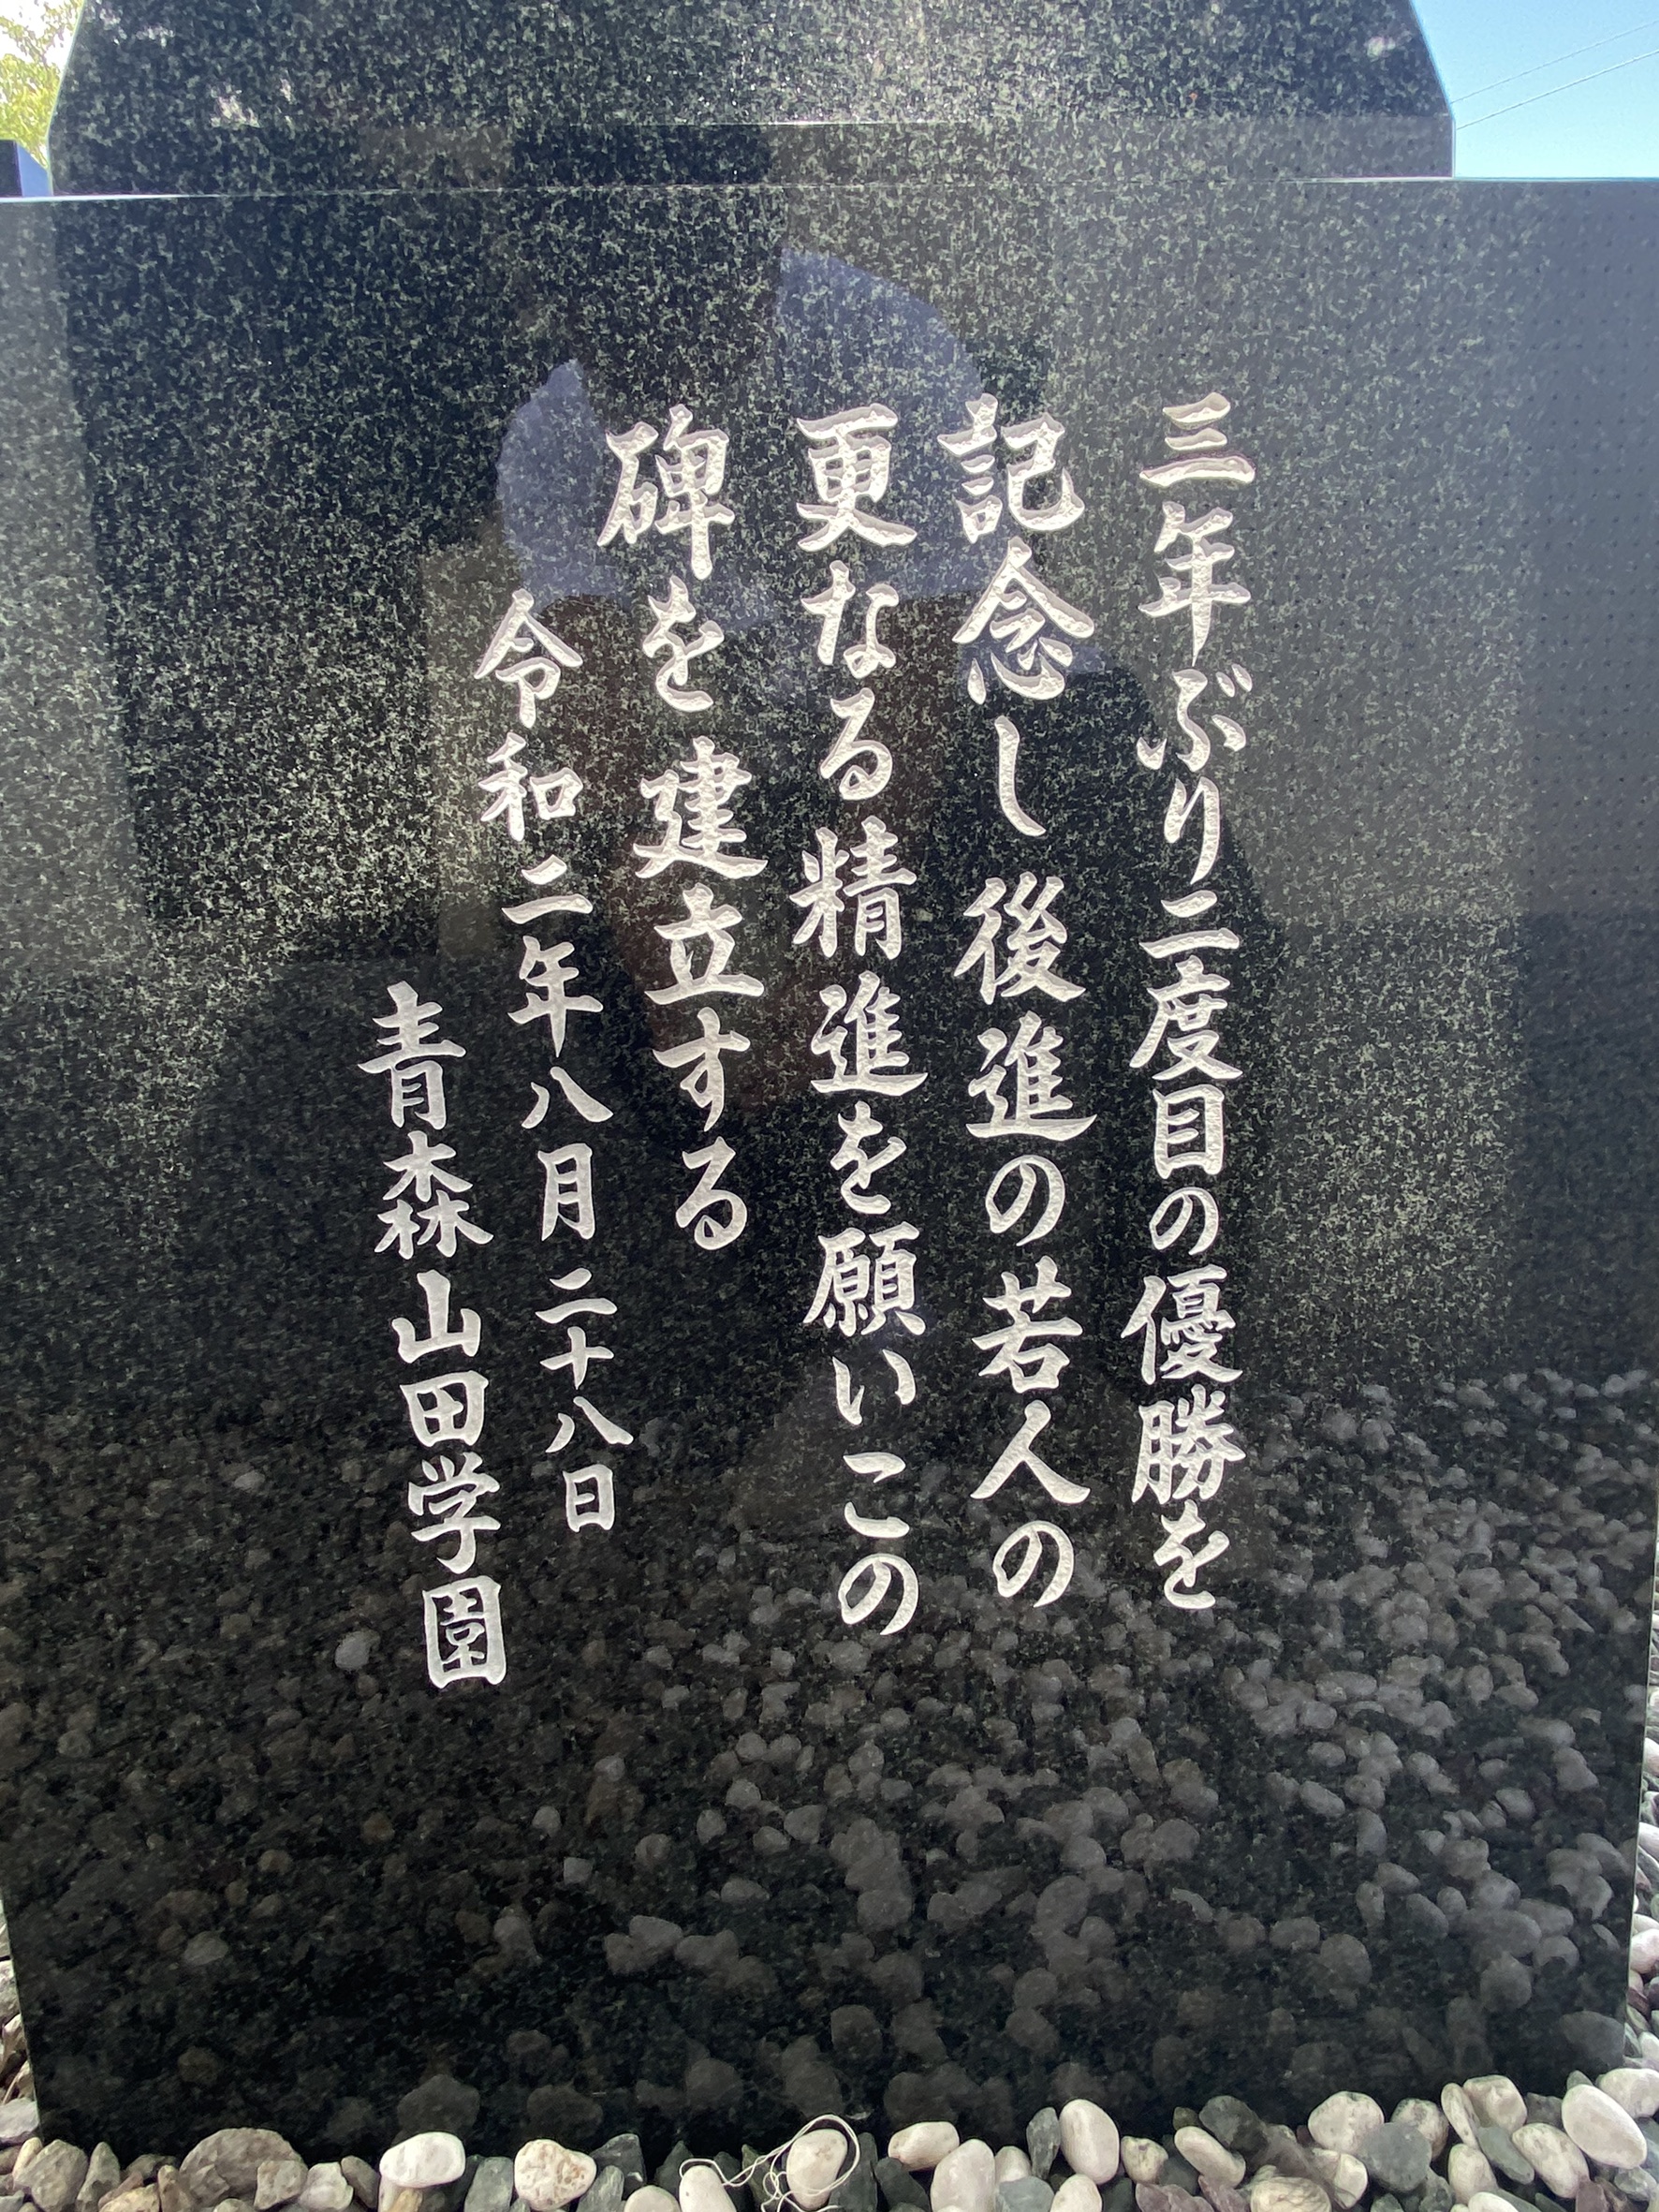 三年ぶり二度目の優勝を
記念し後進の若人の
更なる精進を願いこの
碑を建立する
令和二年八月二十八日
青森山田学園